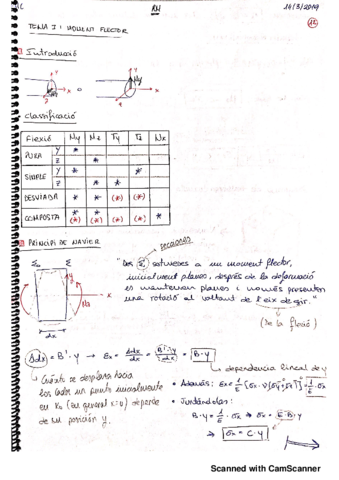 RM
14/3/2019
TEMA I: MOMENT FLECTOR
Introducció
y
x
o
My
Classificació
Flexió My Mz Ty Tz Nx
PURA y *
z *
SIMPLE y * *
z * *
DESVIADA * * (*) (*)
COMPOSTA * (*) * (*) (*) (*) *
PRINCIPI DE NAVIER
seccions
"Les Σ sotmeses a un moment flector,
inicialment planes, després de la deformació
es mantenen planes i només presenten
una rotació al voltant de l'eix de gir."
(De la flexió)
Σ Σ
y
Mz
x
dx
Δdx = B'·y → εx = Δdx/dx = B'·y/dx = B·y
dependència lineal de y
Quant es desplaça cap a
un punt inicialment
en x0 (en general x=0) depèn
de la posició y.
• Además: εx = 1/E [σx - ν(σy + σz)] = 1/E·σx
• Juntándolas:
B·y = 1/E·σx ⇒ σx = E·B·y
⇒ σx = C·y
Scanned with CamScanner